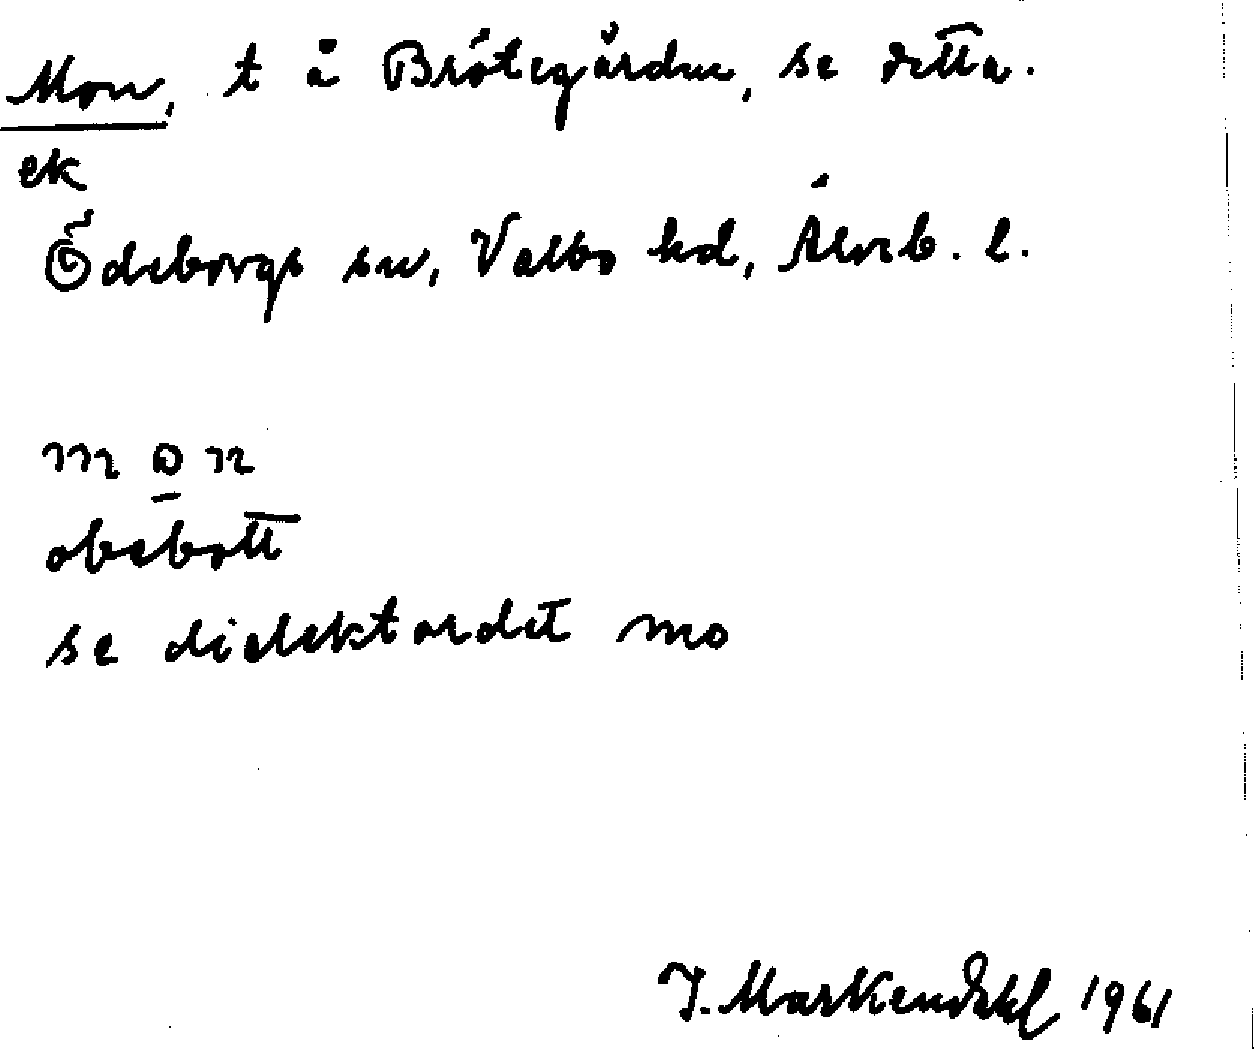 Mon, t å Brötegården, se detta.
ek
Ödeborgs sn, Valbo hd, Älvsb. l.
mɷn
obebott
se dialektordet mo
J. Markendahl 1961